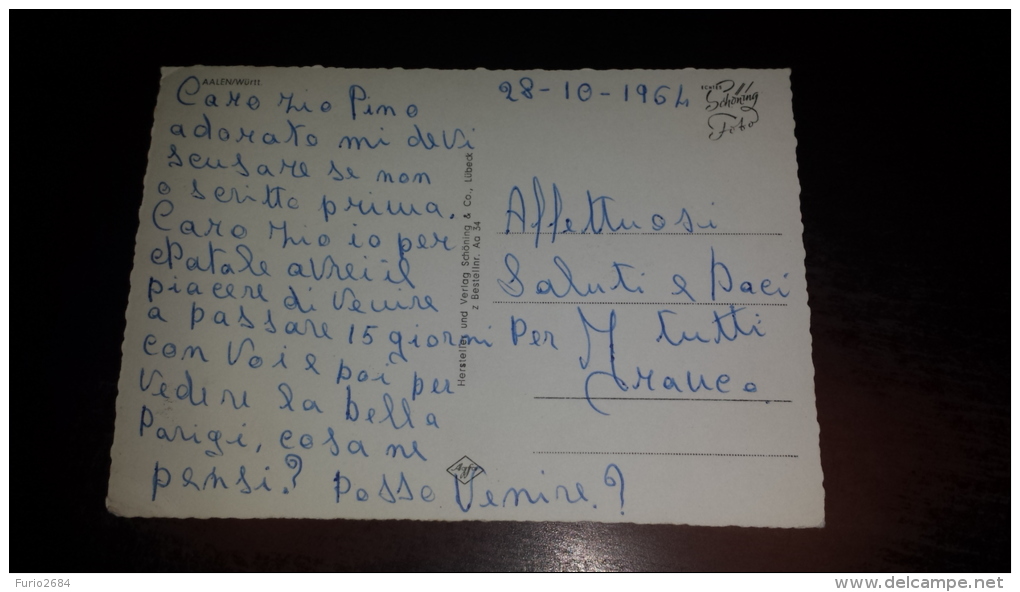 AALEN/Württ.
28-10-1964
ECHTES
Schöning
Foto
Caro zio Pino
adorato mi devi
scusare se non
o scritto prima.
Caro zio io per
Natale avrei il
piacere di venire
a passare 15 giorni
con voi e poi per
vedere la bella
Parigi, cosa ne
pensi? posso venire?
Hersteller und Verlag Schöning & Co., Lübeck
Bestellnr. Aa 34
Affettuosi
Saluti e Baci
per tutti
Franco
Agfa
Furio2684
www.delcampe.net